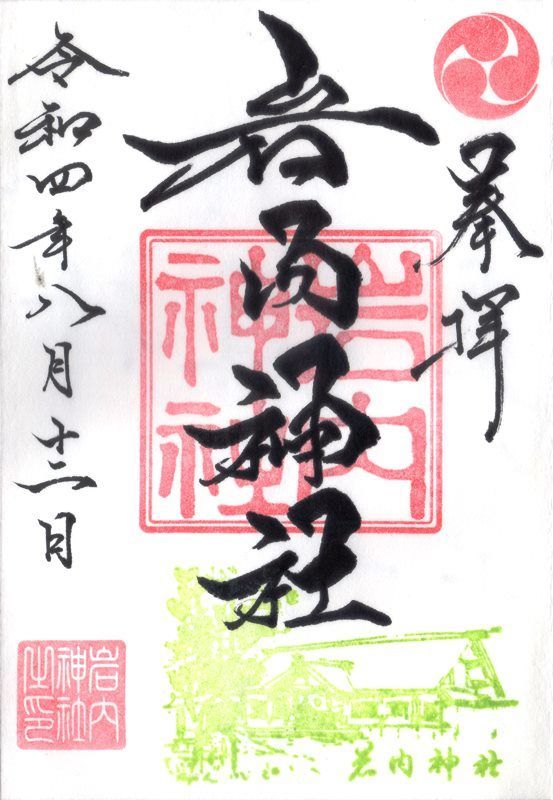 奉拝
岩内神社
岩内
神社
令和四年八月十二日
岩内
神社
之印
岩内神社